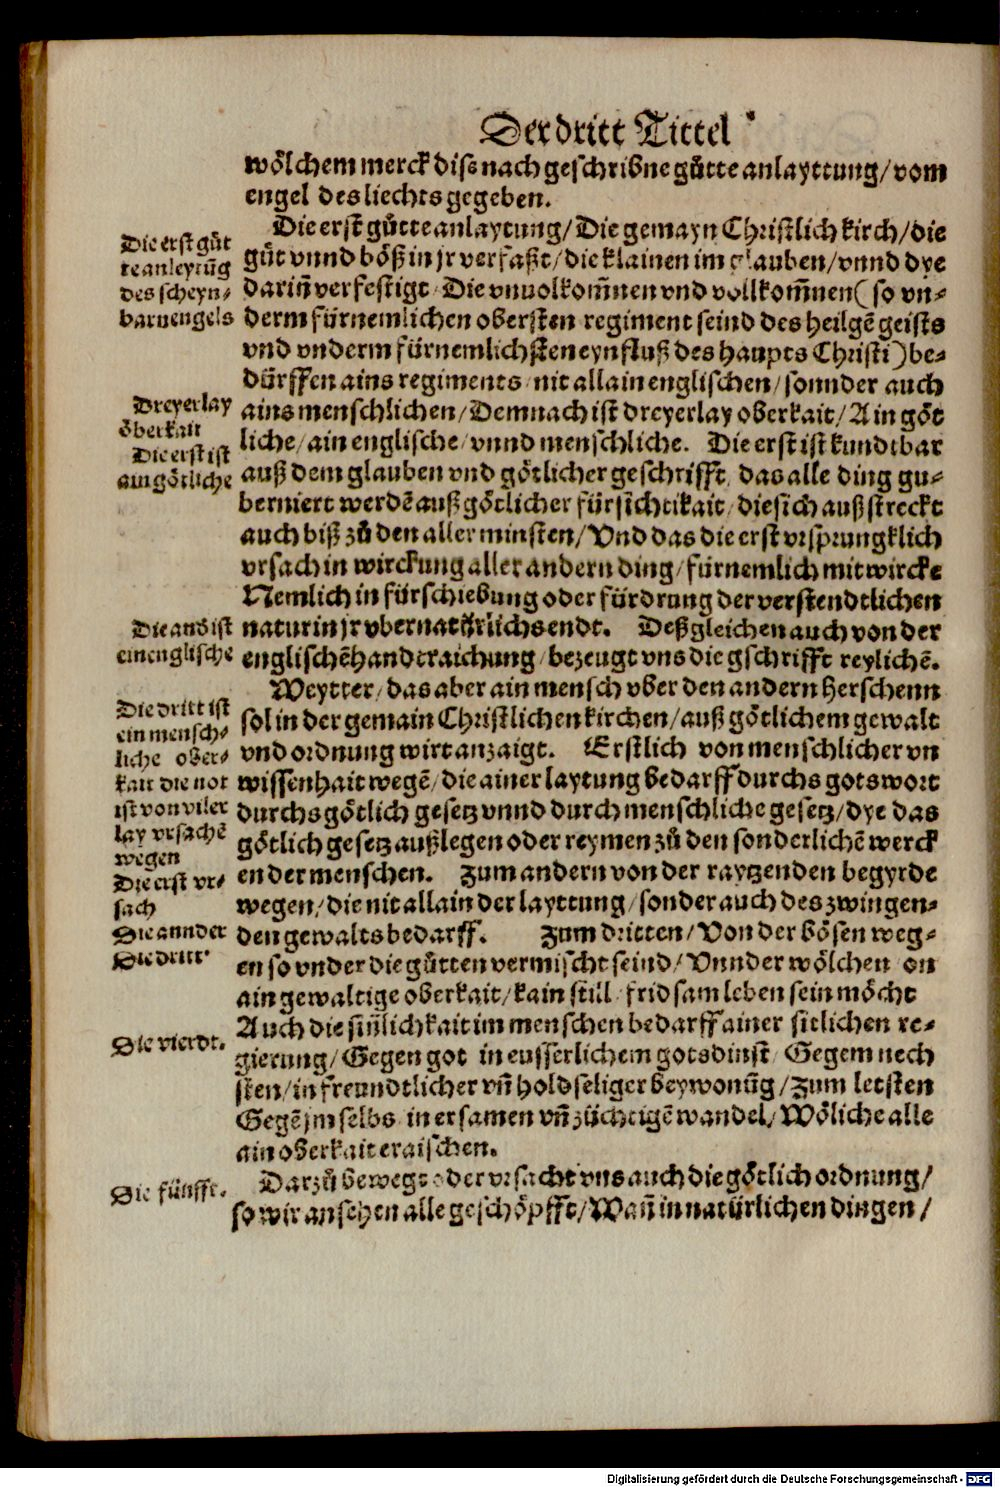 Der dritt Tittel
wölchem merck diß nach geschribne gůtte anlayttung/ vom
engel des liechts gegeben.
Die erst gůtte anlaytung/ Die gemayn Christlich kirch/ die
gůt vnnd böß in jr verfaßt/ die klainen im glauben/ vnnd dye
dariñ verfestigt/ Die vnuolkom̃nen vnd vollkom̃nen (so vn-
derm fürnemlichen obersten regiment seind des heilgē geists
vnd vnderm fürnemlichsten eynfluß des haupts Christi) be-
dürffen ains regiments/ nit allain englischen/ sonnder auch
ains menschlichen/ Demnach ist dreyerlay oberkait/ Ain göt
liche/ ain englische/ vnnd menschliche. Die erst ist kundtbar
auß dem glauben vnd götlicher geschrifft/ das alle ding gu-
berniert werdē auß götlicher fürsichtikait/ die sich außstreckt
auch biß zů den aller minsten/ Vnd das die erst vrsprungklich
vrsach in wirckung aller andern ding/ fürnemlich mitwircke
Nemlich in fürschiebung oder fürdrung der verstendtlichen
natur in jr vbernatürlichs endt. Deßgleichen auch von der
englischē handtraichung/ bezeugt vns die gschrifft reylichē.
Weytter/ das aber ain mensch vber den andern herschenn
sol in der gemain Christlichen kirchen/ auß götlichem gewalt
vnd ordnung wirt anzaigt. Erstlich von menschlicher vn
wissenhait wegē/ die ainer laytung bedarff durchs gotswort
durchs götlich gesetz vnnd durch menschliche gesetz/ dye das
götlich gesetz außlegen oder reymen zů den sonderlichē werck
en der menschen. Zum andern von der raytzenden begyrde
wegen/ die nit allain der layttung/ sonder auch des zwingen-
den gewalts bedarff. Zum dritten/ Von der bösen weg-
en so vnder die gůtten vermischt seind/ Vnnder wölchen on
ain gewaltige oberkait/ kain still fridsam leben sein möcht
Auch die siñlichkait im menschen bedarff ainer sitlichen re-
gierung/ Gegen got in eusserlichem gotsdinst/ Gegem nech
sten/ in freundtlicher vñ holdseliger beywonūg/ Zum letsten
Gegē jm selbs in ersamen vñ züchtigē wandel/ Wöliche alle
ain oberkait eraischen.
Darzů bewegt oder vrsacht vns auch die götlich ordnung/
so wir ansehen alle geschöpfft/ Wañ in natürlichen dingen/
Die erst gůt
te anleytūg
des scheyn-
barn engels
Dreyerlay
öberkait
Die erst ist
ain götliche
Die and ist
ein englische
Die dritt ist
ein mensch-
liche ober-
kait die not
ist von viler
lay vrsachē
wegen
Die erst vr-
sach
Die annder
Die dritt.
Die vierdt.
Die fünfft.
Digitalisierung gefördert durch die Deutsche Forschungsgemeinschaft - DFG